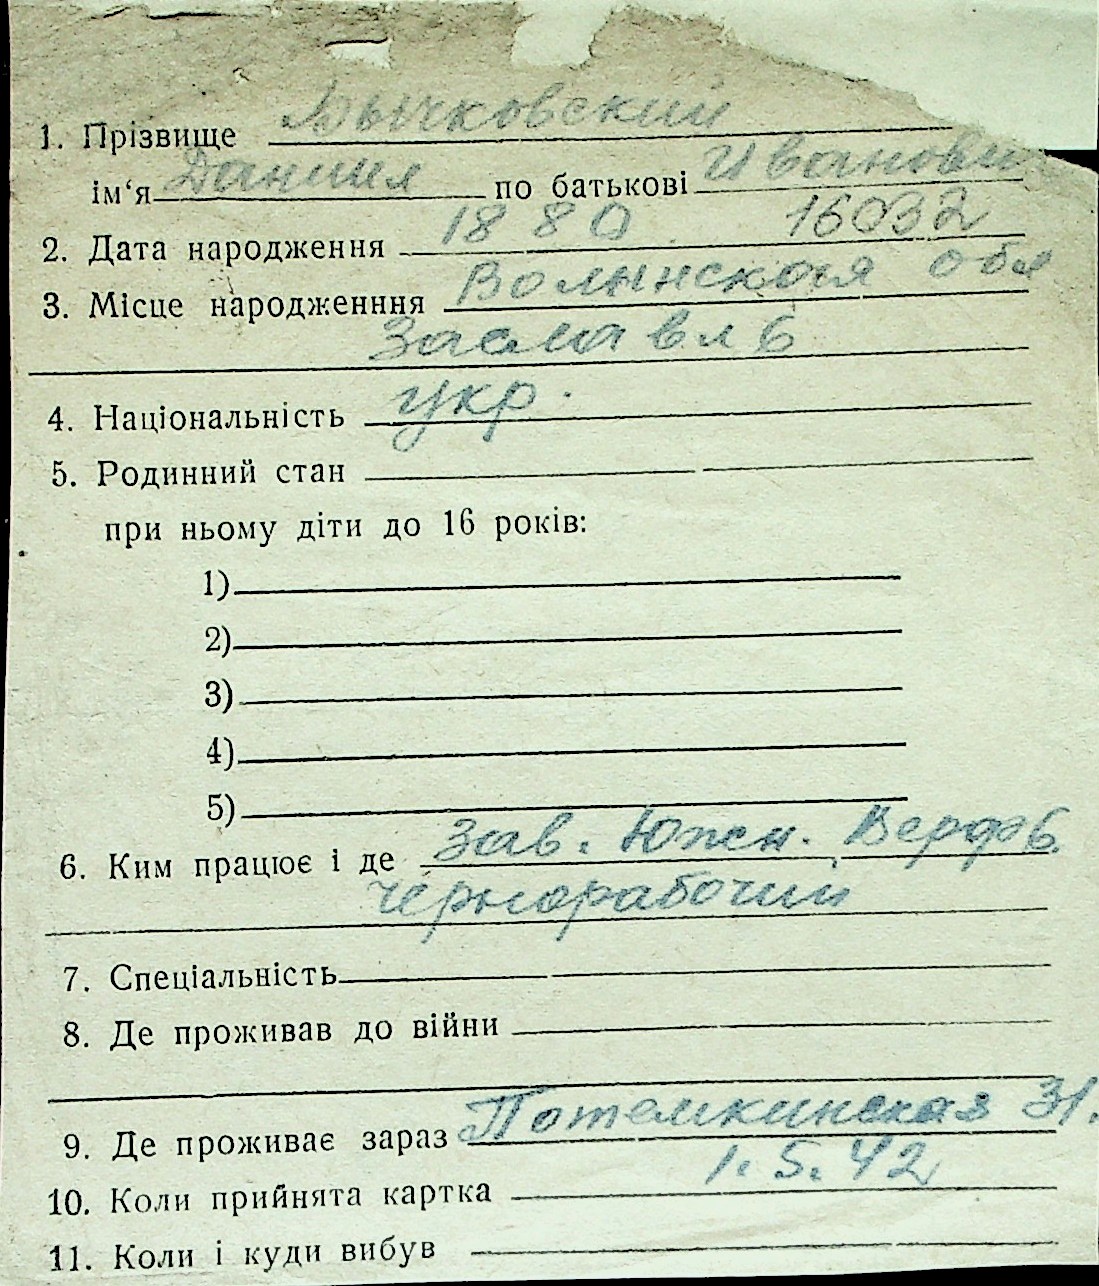 1. Прізвище Бычковский
ім‘я Даниил по батькові Иванови
2. Дата народження 1880 16032
3. Місце народженння Волынская обл
Заславль
4. Національність укр.
5. Родинний стан
при ньому діти до 16 років:
1)
2)
3)
4)
5)
6. Ким працює і де Зав. Южн. Верфь.
чернорабочий
7. Спеціальність
8. Де проживав до війни
9. Де проживає зараз Потемкинская 31.
10. Коли прийнята картка 1.5.42
11. Коли і куди вибув